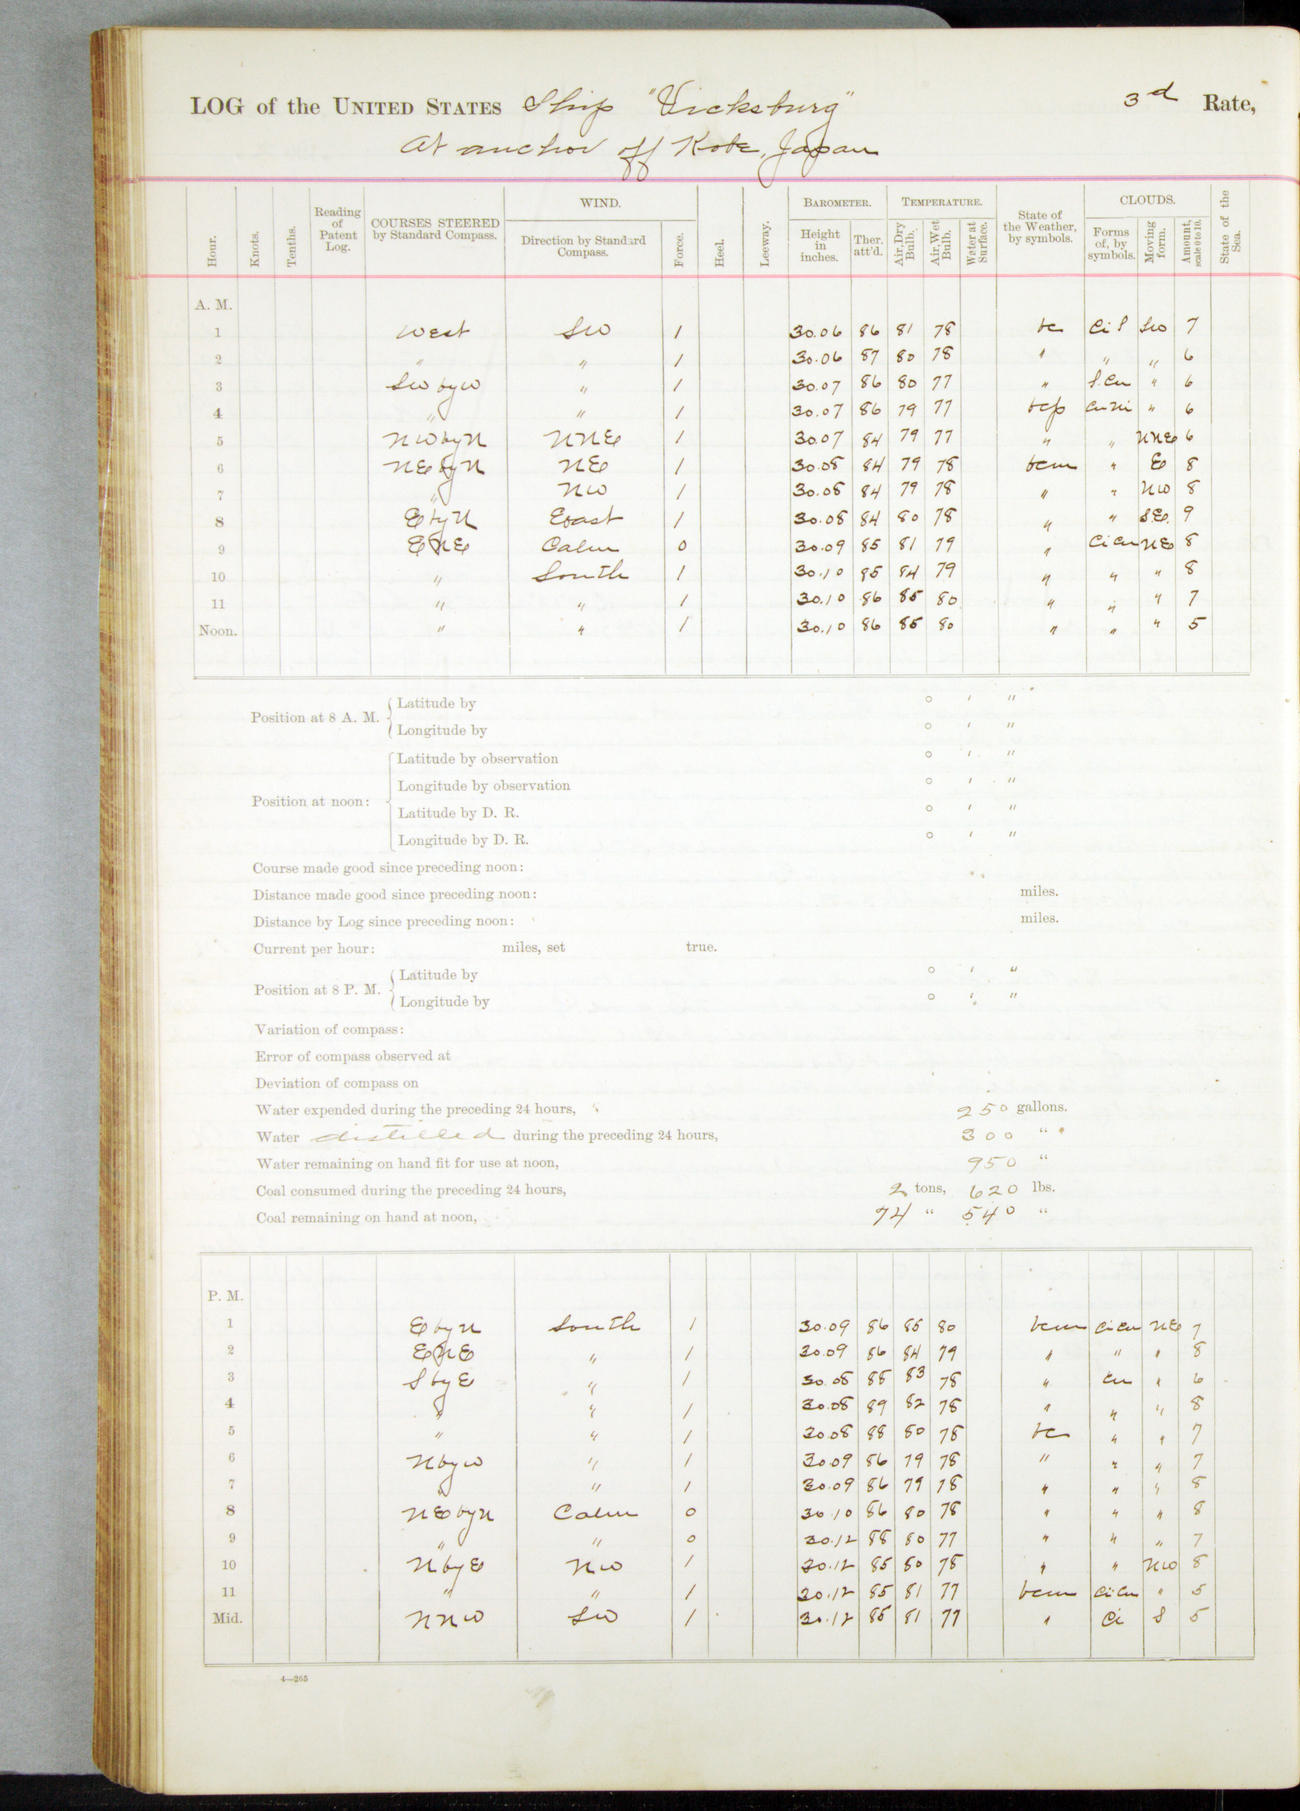 LOG of the UNITED STATES Ship "Vicksburg" 3d Rate,
At anchor off Kobe, Japan
Hour. Knots. Tenths. Reading of Patent Log. COURSES STEERED by Standard Compass. WIND. Direction by Standard Compass. Force. Heel. Leeway. BAROMETER. Height in inches. Ther. att'd. TEMPERATURE. Air, Dry Bulb. Air, Wet Bulb. Water at Surface. State of the Weather, by symbols. CLOUDS. Forms of, by symbols. Moving form. Amount, scale 0 to 10. State of the Sea.
A. M.
1 West SW 1 30.06 86 81 78 bc Ci S SW 7
2 " " 1 30.06 87 80 78 " " " 6
3 SW by W " 1 30.07 86 80 77 " S.Cu " 6
4 " " 1 30.07 86 79 77 bcp Cu Ni " 6
5 NW by N NNE 1 30.07 84 79 77 " " NNE 6
6 NE by N NE 1 30.08 84 79 78 bcm " E 8
7 " NW 1 30.08 84 79 78 " " NW 8
8 E by N East 1 30.08 84 80 78 " " S.E. 9
9 ENE Calm 0 30.09 85 81 79 " Ci Cu NE 8
10 " South 1 30.10 85 84 79 " " " 8
11 " " 1 30.10 86 85 80 " " " 7
Noon. " " 1 30.10 86 85 80 " " " 5
Position at 8 A. M. Latitude by ° ' "
Longitude by ° ' "
Position at noon: Latitude by observation ° ' "
Longitude by observation ° ' "
Latitude by D. R. ° ' "
Longitude by D. R. ° ' "
Course made good since preceding noon:
Distance made good since preceding noon: miles.
Distance by Log since preceding noon: miles.
Current per hour: miles, set true.
Position at 8 P. M. Latitude by ° ' "
Longitude by ° ' "
Variation of compass:
Error of compass observed at
Deviation of compass on
Water expended during the preceding 24 hours, 250 gallons.
Water distilled during the preceding 24 hours, 300 "
Water remaining on hand fit for use at noon, 950 "
Coal consumed during the preceding 24 hours, 2 tons, 620 lbs.
Coal remaining on hand at noon, 74 " 540 "
P. M.
1 E by N South 1 30.09 86 85 80 bcm Ci Cu NE 7
2 ENE " 1 30.09 86 84 79 " " " 8
3 S by E " 1 30.08 88 83 78 " Cu " 6
4 " " 1 30.08 89 82 78 " " " 8
5 " " 1 30.08 88 80 78 bc " " 7
6 N by W " 1 30.09 86 79 78 " " " 7
7 " " 1 30.09 86 79 78 " " " 8
8 NE by N Calm 0 30.10 86 80 78 " " " 8
9 " " 0 30.12 88 80 77 " " " 7
10 N by E NW 1 30.12 85 80 78 " " NW 8
11 " " 1 30.12 85 81 77 bcm Ci Cu " 5
Mid. NNW SW 1 30.12 85 81 77 " Ci S 5
4—265